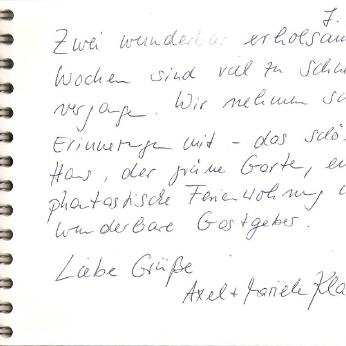 7.
Zwei wunderbar erholsam
Wochen sind viel zu schn
vergangen. Wir nehmen sc
Erinnerungen mit - das schö
Haus, der grüne Garten, e
phantastische Ferienwohnung
wunderbare Gastgeber.
Liebe Grüße
Axel + Mariele Kla